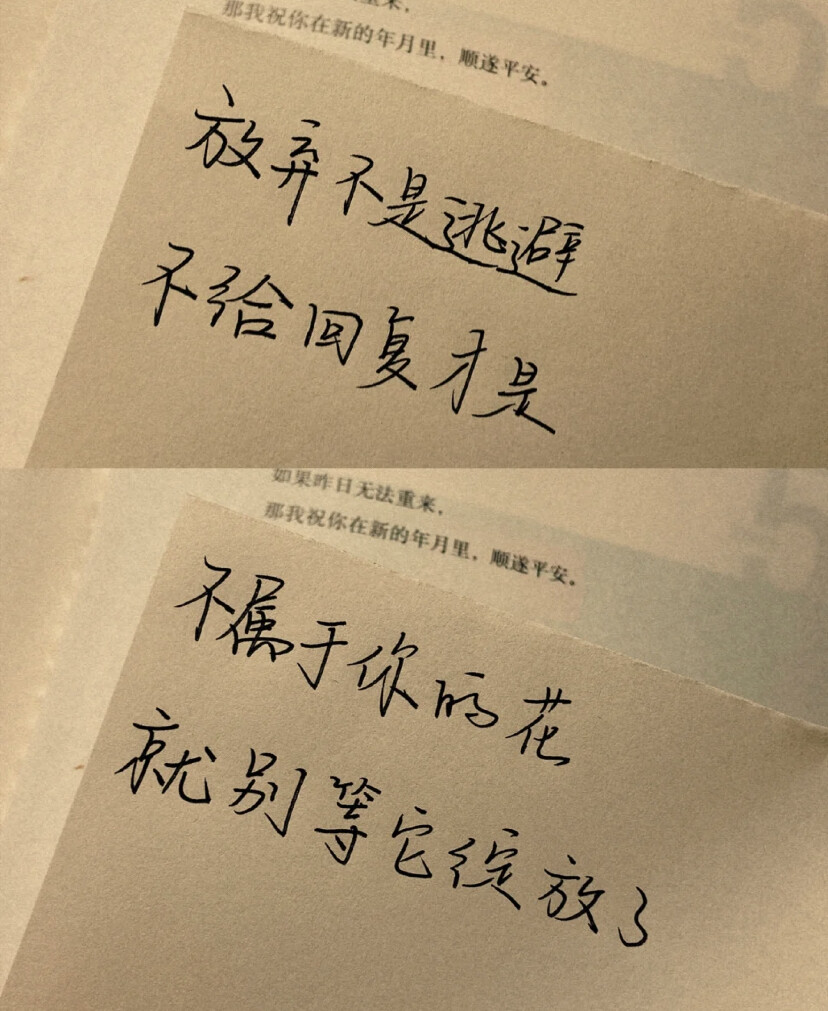 重来，
那我祝你在新的年月里，顺遂平安。
放弃不是逃避
不给回复才是
如果昨日无法重来，
那我祝你在新的年月里，顺遂平安。
不属于你的花
就别等它绽放了